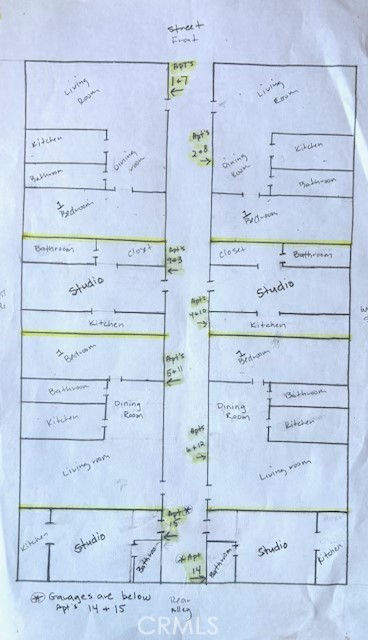 Street
Front
Apt's
1+7
Living
Room
Living
Room
Apt's
2+8
Kitchen
Dining
room
Dining
Room
Kitchen
Bathroom
Bathroom
1
Bedroom
1
Bedroom
Bathroom
Closet
Apt's
Closet
Bathroom
Studio
Studio
Apt's
4+10
Kitchen
Kitchen
1
Bedroom
Apt's
5+11
1
Bedroom
Bathroom
Dining
Room
Dining
Room
Bathroom
Kitchen
Kitchen
Apt's
6+12
Living room
Living room
Apt
15
Kitchen
Studio
Bathroom
Apt
14
Bathroom
Studio
Kitchen
* Garages are below
Apt's 14 + 15
Rear
Alley
CRMLS